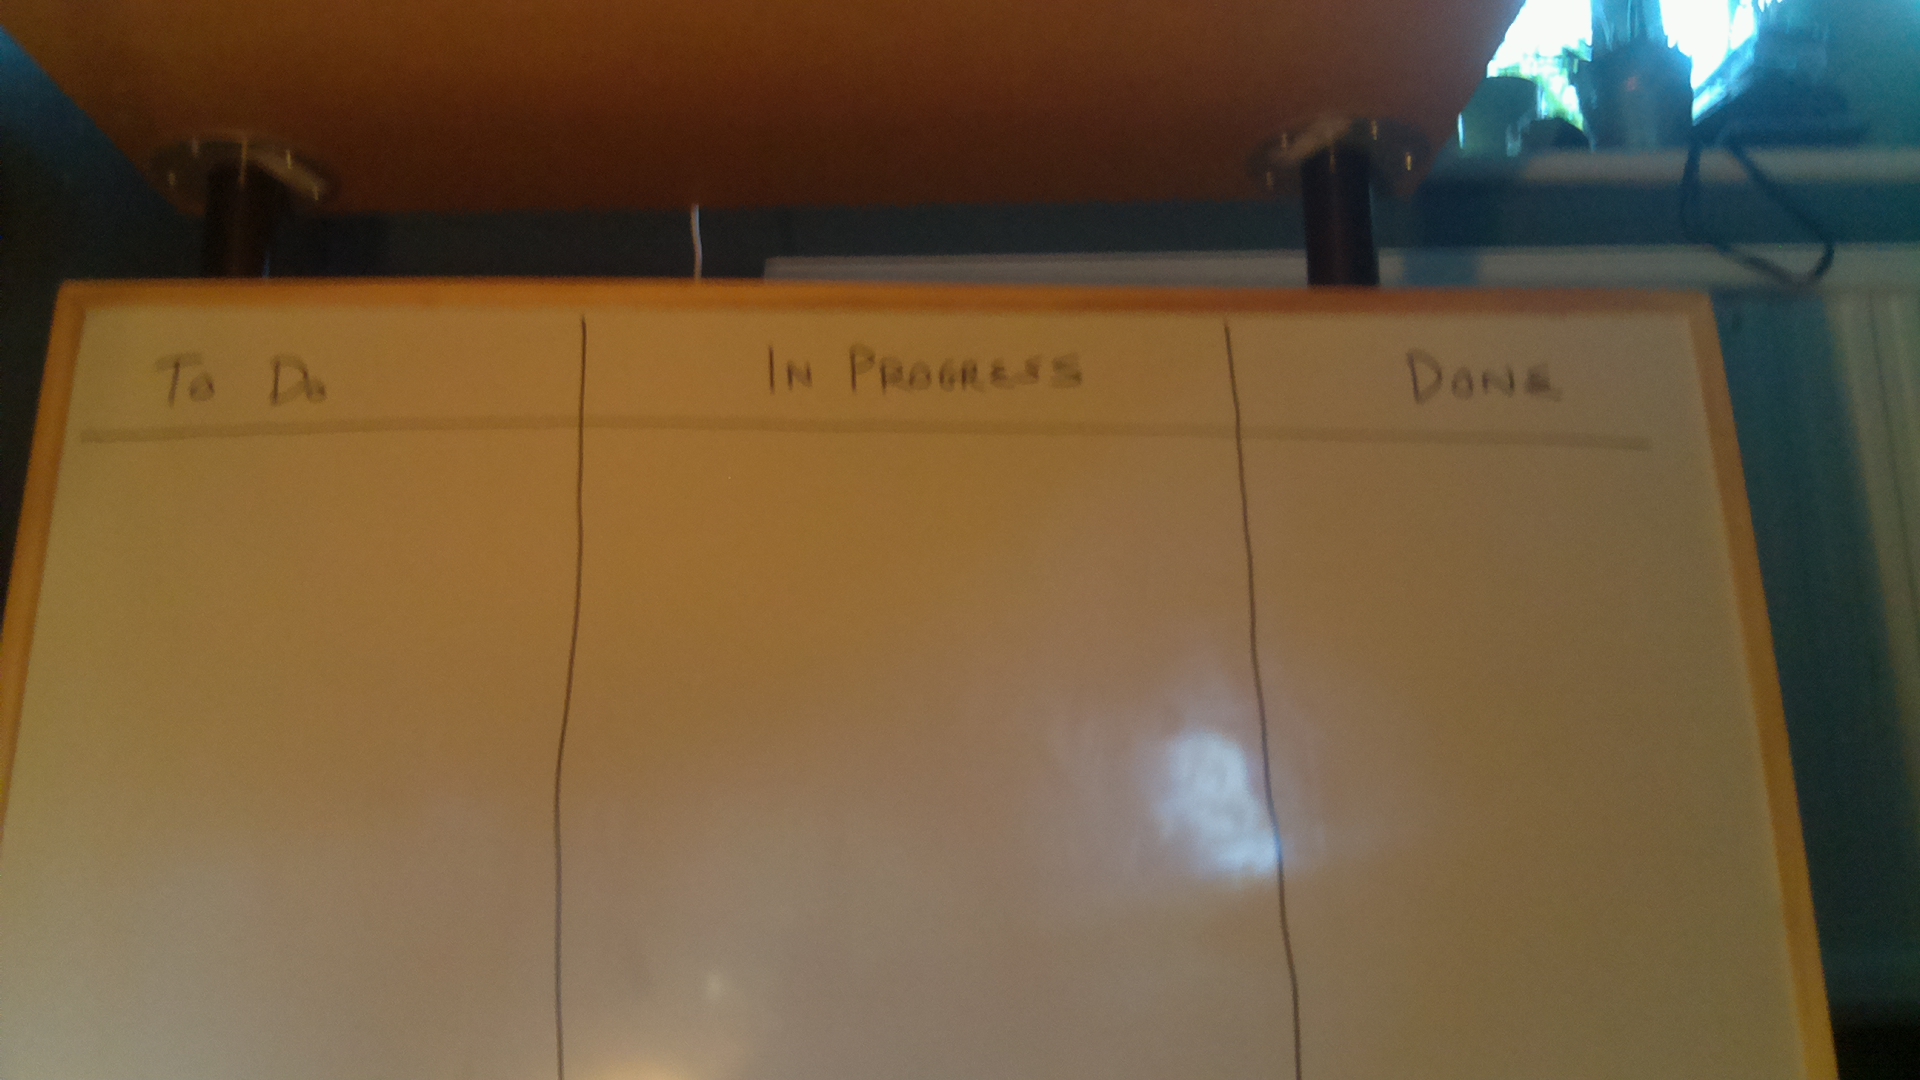 To Do
In Progress
Done